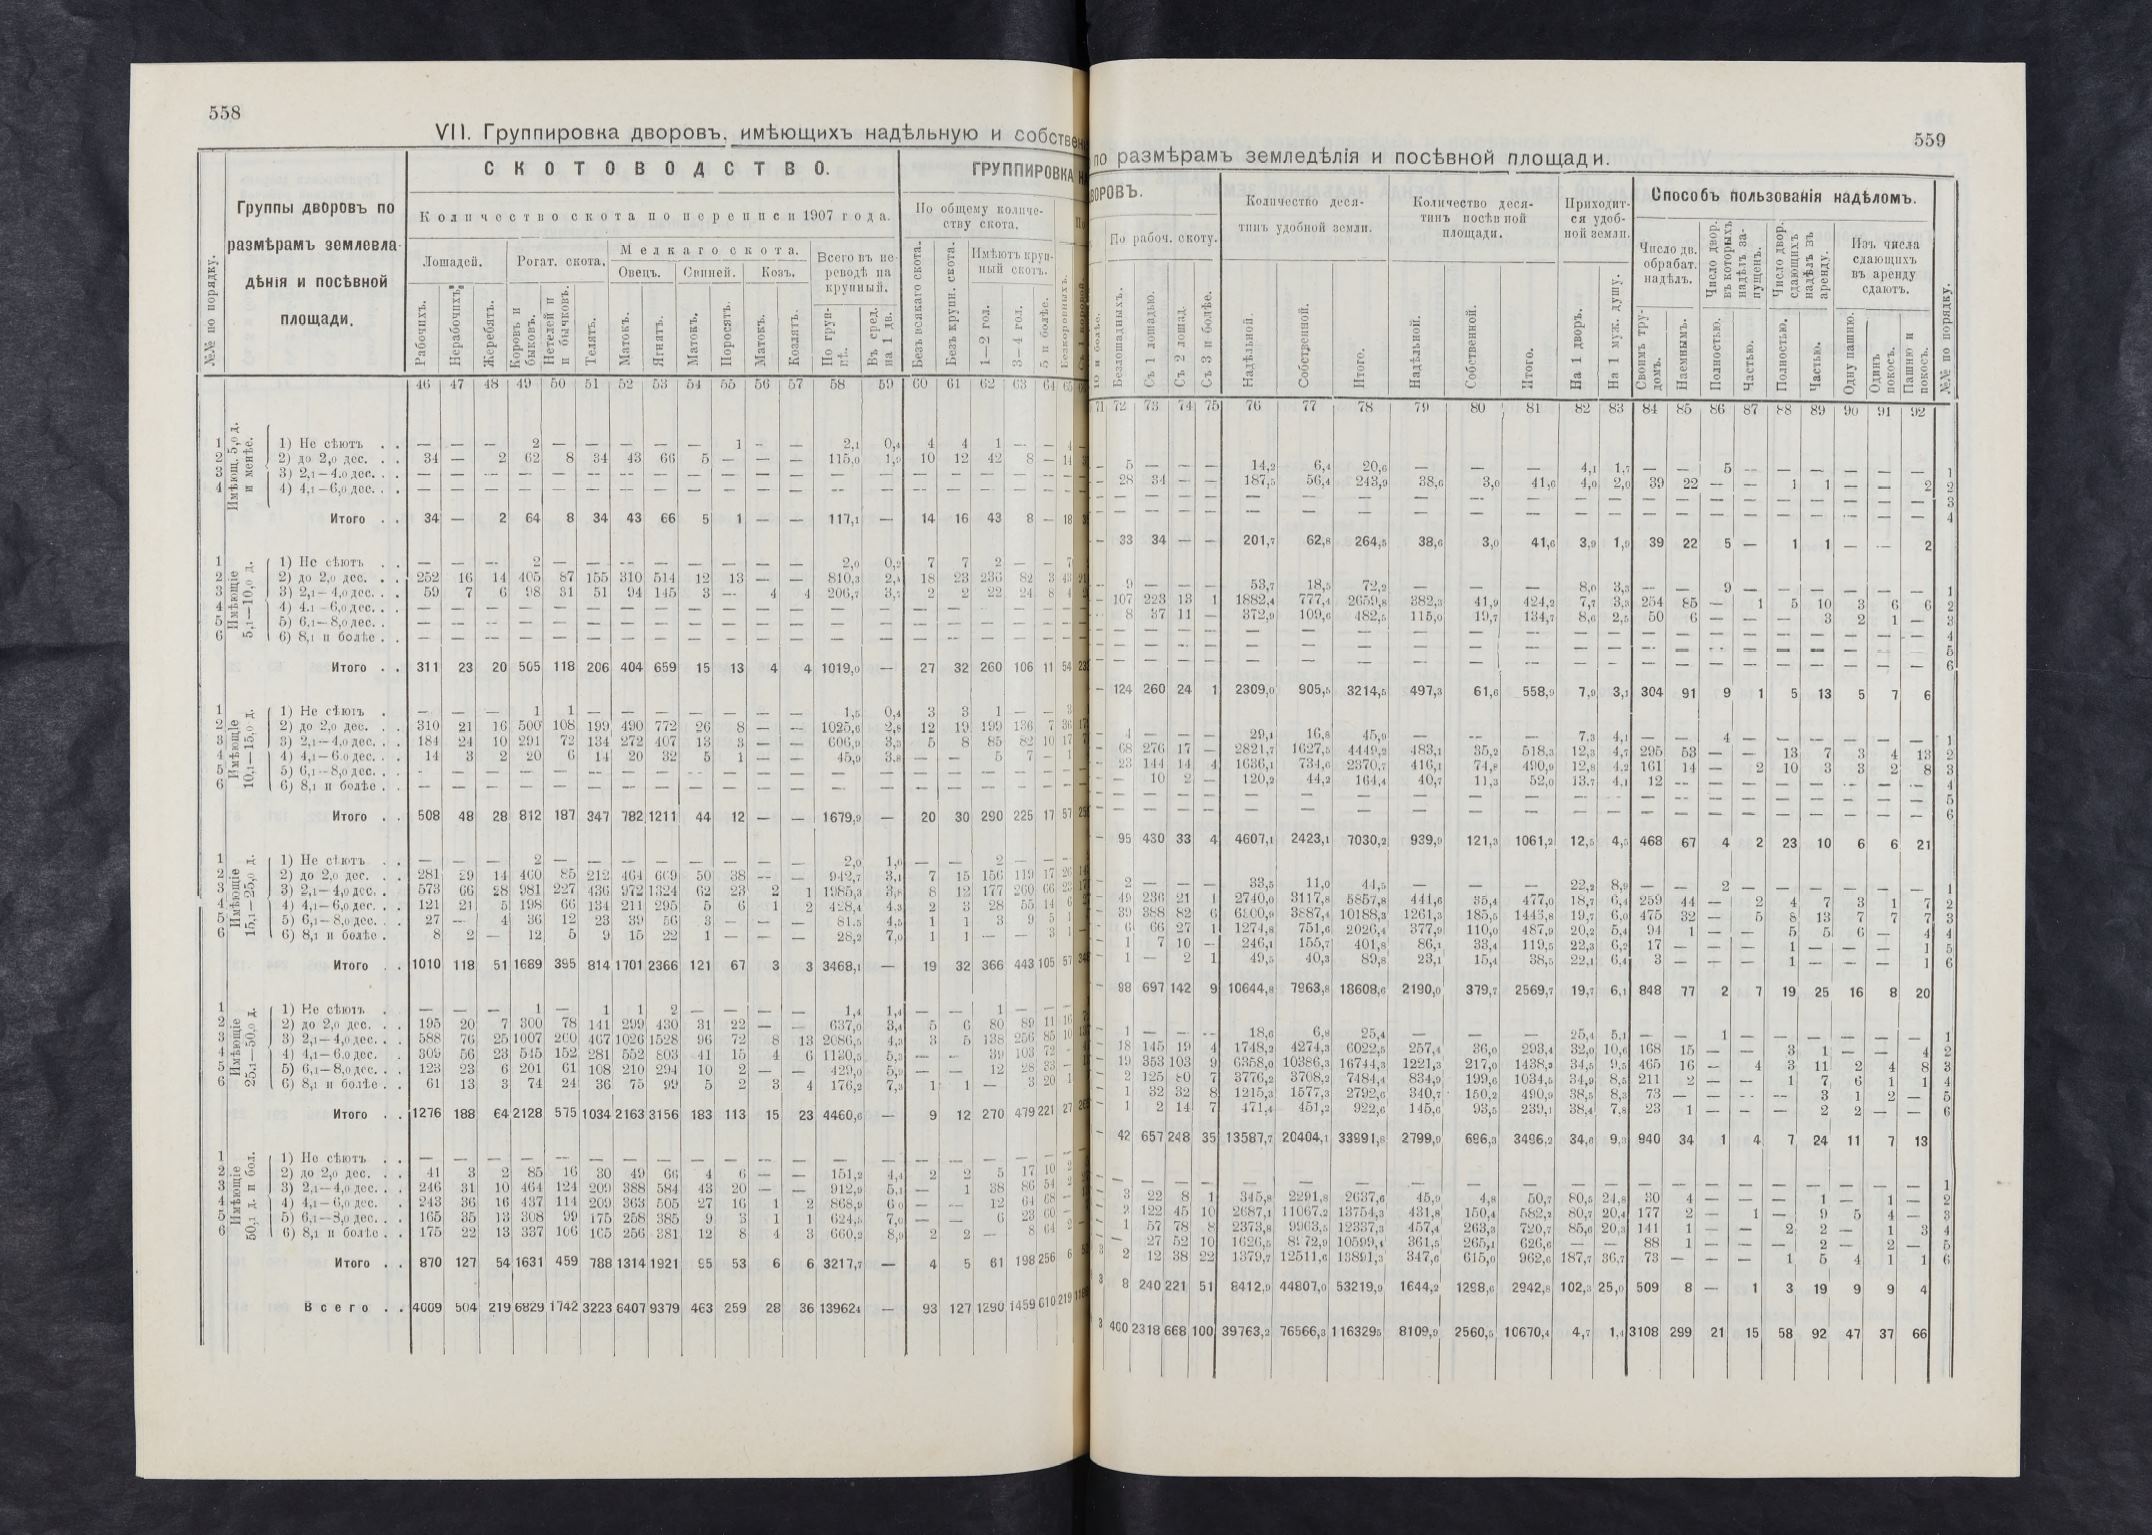 558
VII. Группировка дворовъ, имѣющихъ надѣльную и собствен
№№ по порядку.
Группы дворовъ по
размѣрамъ землевла-
дѣнія и посѣвной
площади.
СКОТОВОДСТВО.
ГРУППИРОВКА
Количество скота по переписи 1907 года.
По общему количе-
ству скота.
Лошадей.
Рогат. скота.
Мелкаго скота.
Овецъ. Свиней. Козъ.
Всего въ пе-
реводѣ на
крупный.
Имѣютъ круп-
ный скотъ.
Рабочихъ.
Нерабочихъ.
Жеребятъ.
Коровъ и быковъ.
Нетелей и бычковъ.
Телятъ.
Матокъ.
Ягнятъ.
Матокъ.
Поросятъ.
Матокъ.
Козлятъ.
По груп-пѣ.
Въ сред. на 1 дв.
Безъ всякаго скота.
Безъ крупн. скота.
1—2 гол.
3—4 гол.
5 и болѣе.
46 47 48 49 50 51 52 53 54 55 56 57 58 59 60 61 62 63 64 65
Имѣющ. 5,0 д. и менѣе.
1 1) Не сѣютъ . . — — — 2 — — — — — 1 — — 2,1 0,4 4 4 1 — — 4
2 2) до 2,0 дес. . . 34 — 2 62 8 34 43 66 5 — — — 115,0 1,9 10 12 42 8 — 14
3 3) 2,1—4,0 дес. . . — — — — — — — — — — — — — — — — — — —
4 4) 4,1—6,0 дес. . . — — — — — — — — — — — — — — — — — — —
Итого . . 34 — 2 64 8 34 43 66 5 1 — — 117,1 — 14 16 43 8 — 18
Имѣющіе 5,1—10,0 д.
1 1) Не сѣютъ . . — — — 2 — — — — — — — — 2,0 0,2 7 7 2 — — 7
2 2) до 2,0 дес. . . 252 16 14 405 87 155 310 514 12 13 — — 810,3 2,4 18 23 236 82 3 43
3 3) 2,1—4,0 дес. . . 59 7 6 98 31 51 94 145 3 — 4 4 206,7 3,7 2 2 22 24 8 4
4 4) 4,1—6,0 дес. . . — — — — — — — — — — — — — — — — — — —
5 5) 6,1—8,0 дес. . . — — — — — — — — — — — — — — — — — — —
6 6) 8,1 и болѣе . . — — — — — — — — — — — — — — — — — — —
Итого . . 311 23 20 505 118 206 404 659 15 13 4 4 1019,0 — 27 32 260 106 11 54
Имѣющіе 10,1—15,0 д.
1 1) Не сѣютъ . — — — 1 1 — — — — — — — 1,5 0,4 3 3 1 — — 3
2 2) до 2,0 дес. . . 310 21 16 500 108 199 490 772 26 8 — — 1025,6 2,8 12 19 199 136 7 36
3 3) 2,1—4,0 дес. . . 184 24 10 291 72 134 272 407 13 3 — — 606,9 3,3 5 8 85 82 10 17
4 4) 4,1—6,0 дес. . . 14 3 2 20 6 14 20 32 5 1 — — 45,9 3,8 — — 5 7 — 1
5 5) 6,1—8,0 дес. . . — — — — — — — — — — — — — — — — — — —
6 6) 8,1 и болѣе . . — — — — — — — — — — — — — — — — — — —
Итого . . 508 48 28 812 187 347 782 1211 44 12 — — 1679,9 — 20 30 290 225 17 57
Имѣющіе 15,1—25,0 д.
1 1) Не сѣютъ . . — — — 2 — — — — — — — — 2,0 1,0 — — 2 — —
2 2) до 2,0 дес. . . 281 29 14 460 85 212 464 669 50 38 — — 942,7 3,1 7 15 156 119 17 26
3 3) 2,1—4,0 дес. . . 573 66 28 981 227 436 972 1324 62 23 2 1 1985,3 3,8 8 12 177 260 66 23
4 4) 4,1—6,0 дес. . . 121 21 5 198 66 134 211 295 5 6 1 2 428,4 4,3 2 3 28 55 14 6
5 5) 6,1—8,0 дес. . . 27 — 4 36 12 23 39 56 3 — — — 81,5 4,5 1 1 3 9 5 1
6 6) 8,1 и болѣе . 8 2 — 12 5 9 15 22 1 — — — 28,2 7,0 1 1 — — 3 1
Итого . . 1010 118 51 1689 395 814 1701 2366 121 67 3 3 3468,1 — 19 32 366 443 105 57
Имѣющіе 25,1—50,0 д.
1 1) Не сѣютъ . — — — 1 — 1 1 2 — — — — 1,4 1,4 — — 1 — —
2 2) до 2,0 дес. . . 195 20 7 300 78 141 299 430 31 22 — — 637,0 3,4 5 6 80 89 11 16
3 3) 2,1—4,0 дес. . . 588 76 25 1007 260 467 1026 1528 96 72 8 13 2086,5 4,3 3 5 138 256 85 10
4 4) 4,1—6,0 дес. . . 309 56 23 545 152 281 552 803 41 15 4 6 1130,5 5,3 — — 39 103 72 —
5 5) 6,1—8,0 дес. . . 123 23 6 201 61 108 210 294 10 2 — — 429,0 5,9 — — 12 28 33 —
6 6) 8,1 и болѣе . . 61 13 3 74 24 36 75 99 5 2 3 4 176,2 7,3 1 1 — 3 20 1
Итого . . 1276 188 64 2128 575 1034 2163 3156 183 113 15 23 4460,6 — 9 12 270 479 221 27
Имѣющіе 50,1 д. и бол.
1 1) Не сѣютъ . . — — — — — — — — — — — — — — — — — — —
2 2) до 2,0 дес. . . 41 3 2 85 16 30 49 66 4 6 — — 151,2 4,4 2 2 5 17 10 2
3 3) 2,1—4,0 дес. . . 246 31 10 464 124 209 388 584 43 20 — — 912,9 5,1 — 1 38 86 54 2
4 4) 4,1—6,0 дес. . . 243 36 16 437 114 209 363 505 27 16 1 2 868,9 6,0 — — 12 64 68 —
5 5) 6,1—8,0 дес. . . 165 35 13 308 99 175 258 385 9 3 1 1 624,5 7,0 — — 6 23 60 —
6 6) 8,1 и болѣе . . 175 22 13 337 106 165 256 381 12 8 4 3 660,2 8,9 2 2 — 8 64 2
Итого . . 870 127 54 1631 459 788 1314 1921 95 53 6 6 3217,7 — 4 5 61 198 256 6
Всего . . 4009 504 219 6829 1742 3223 6407 9379 463 259 28 36 13962,4 — 93 127 1290 1459 610 219
559
по размѣрамъ земледѣлія и посѣвной площади.
ВОРОВЪ.
По рабоч. скоту.
Количество деся-
тинъ удобной земли.
Количество деся-
тинъ посѣвной
площади.
Приходит-
ся удоб-
ной земли.
Способъ пользованія надѣломъ.
Число дв.
обрабат.
надѣлъ.
Число двор. въ которыхъ надѣлъ за-пущенъ.
Число двор. сдающихъ надѣлъ въ аренду.
Изъ числа
сдающихъ
въ аренду
сдаютъ.
10 и болѣе.
Безлошадныхъ.
Съ 1 лошадью.
Съ 2 лошад.
Съ 3 и болѣе.
Надѣльной.
Собственной.
Итого.
Надѣльной.
Собственной.
Итого.
На 1 дворъ.
На 1 муж. душу.
Своимъ тру-домъ.
Наемнымъ.
Полностью.
Частью.
Полностью.
Частью.
Одну пашню.
Одинъ покосъ.
Пашню и покосъ.
№№ по порядку.
71 72 73 74 75 76 77 78 79 80 81 82 83 84 85 86 87 88 89 90 91 92
— 5 — — — 14,2 6,4 20,6 — — — 4,1 1,7 — — 5 — — — — — — 1
— 28 34 — — 187,5 56,4 243,9 38,6 3,0 41,6 4,0 2,0 39 22 — — 1 1 — — 2 2
— — — — — — — — — — — — — — — — — — — — — — 3
— — — — — — — — — — — — — — — — — — — — — — 4
— 33 34 — — 201,7 62,8 264,5 38,6 3,0 41,6 3,9 1,9 39 22 5 — 1 1 — — 2
— 9 — — — 53,7 18,5 72,2 — — — 8,0 3,3 — — 9 — — — — — — 1
— 107 223 13 1 1882,4 777,4 2659,8 382,3 41,9 424,2 7,7 3,3 254 85 — 1 5 10 3 6 6 2
— 8 37 11 — 372,9 109,6 482,5 115,0 19,7 134,7 8,6 2,5 50 6 — — — 3 2 1 — 3
— — — — — — — — — — — — — — — — — — — — — — 4
— — — — — — — — — — — — — — — — — — — — — — 5
— — — — — — — — — — — — — — — — — — — — — — 6
— 124 260 24 1 2309,0 905,5 3214,5 497,3 61,6 558,9 7,9 3,1 304 91 9 1 5 13 5 7 6
— 4 — — — 29,1 16,8 45,9 — — — 7,3 4,1 — — 4 — — — — — — 1
— 68 276 17 — 2821,7 1627,5 4449,2 483,1 35,2 518,3 12,3 4,7 295 53 — — 13 7 3 4 13 2
— 23 144 14 4 1636,1 734,6 2370,7 416,1 74,8 490,9 12,8 4,2 161 14 — 2 10 3 3 2 8 3
— — 10 2 — 120,2 44,2 164,4 40,7 11,3 52,0 13,7 4,1 12 — — — — — — — — 4
— — — — — — — — — — — — — — — — — — — — — — 5
— — — — — — — — — — — — — — — — — — — — — — 6
— 95 430 33 4 4607,1 2423,1 7030,2 939,9 121,3 1061,2 12,5 4,5 468 67 4 2 23 10 6 6 21
— 2 — — — 33,5 11,0 44,5 — — — 22,2 8,9 — — 2 — — — — — — 1
— 49 236 21 1 2740,0 3117,8 5857,8 441,6 35,4 477,0 18,7 6,4 259 44 — 2 4 7 3 1 7 2
— 39 388 82 6 6300,9 3887,4 10188,3 1261,3 185,5 1446,8 19,7 6,0 475 32 — 5 8 13 7 7 7 3
— 6 66 27 1 1274,8 751,6 2026,4 377,9 110,0 487,9 20,2 5,4 94 1 — — 5 5 6 — 4 4
— 1 7 10 — 246,1 155,7 401,8 86,1 33,4 119,5 22,3 6,2 17 — — — 1 — — — 1 5
— 1 — 2 1 49,5 40,3 89,8 23,1 15,4 38,5 22,1 6,4 3 — — — 1 — — — 1 6
— 98 697 142 9 10644,8 7963,8 18608,6 2190,0 379,7 2569,7 19,7 6,1 848 77 2 7 19 25 16 8 20
— 1 — — — 18,6 6,8 25,4 — — — 25,4 5,1 — — 1 — — — — — — 1
— 18 145 19 4 1748,2 4274,3 6022,5 257,4 36,0 293,4 32,0 10,6 168 15 — — 3 1 — — 4 2
— 19 353 103 9 6358,0 10386,3 16744,3 1221,3 217,0 1438,3 34,5 9,5 465 16 — 4 3 11 2 4 8 3
— 2 125 80 7 3776,2 3708,2 7484,4 834,9 199,6 1034,5 34,9 8,5 211 2 — — 1 7 6 1 1 4
— 1 32 32 8 1215,3 1577,3 2792,6 340,7 150,2 490,9 38,5 8,3 73 — — — — 3 1 2 — 5
— 1 2 14 7 471,4 451,2 922,6 145,6 93,5 239,1 38,4 7,8 23 1 — — — 2 2 — — 6
— 42 657 248 35 13587,7 20404,1 33991,8 2799,9 696,3 3496,2 34,6 9,3 940 34 1 4 7 24 11 7 13
— — — — — — — — — — — — — — — — — — — — — — 1
— 3 22 8 1 345,8 2291,8 2637,6 45,9 4,8 50,7 80,5 24,8 30 4 — — — 1 — 1 — 2
— 2 122 45 10 2687,1 11067,2 13754,3 431,8 150,4 582,2 80,7 20,4 177 2 — 1 — 9 5 4 — 3
— 1 57 78 8 2373,8 9963,5 12337,3 457,4 263,3 720,7 85,6 20,3 141 1 — — 2 2 — 1 3 4
— 27 52 10 1626,5 8972,9 10599,4 361,5 265,1 626,6 — — 88 1 — — — 2 — 2 — 5
3 2 12 38 22 1379,7 12511,6 13891,3 347,6 615,0 962,6 187,7 36,7 73 — — — 1 5 4 1 1 6
3 8 240 221 51 8412,9 44807,0 53219,9 1644,2 1298,6 2942,8 102,3 25,0 509 8 — 1 3 19 9 9 4
3 400 2318 668 100 39763,2 76566,3 116329,5 8109,9 2560,5 10670,4 4,7 1,4 3108 299 21 15 58 92 47 37 66